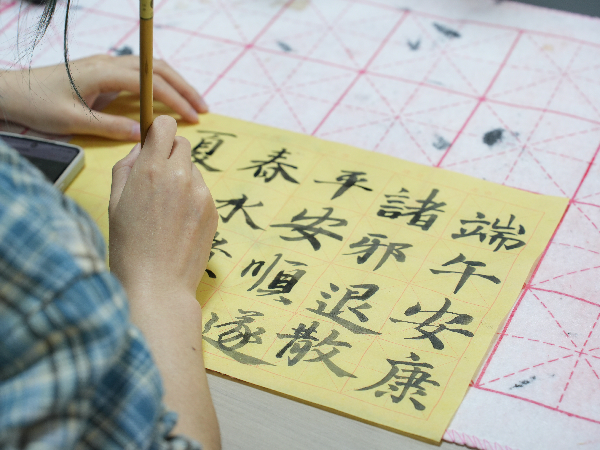 端午安康
諸邪退散
平安順遂
春水
夏